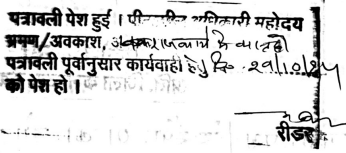 पत्रावली पेश हुई । पीठासीन अधिकारी महोदय
भ्रमण/अवकाश, राजकार्य में व्यस्त है
पत्रावली पूर्वानुसार कार्यवाही हेतु दि. 29/10/24
को पेश हो ।
रीडर